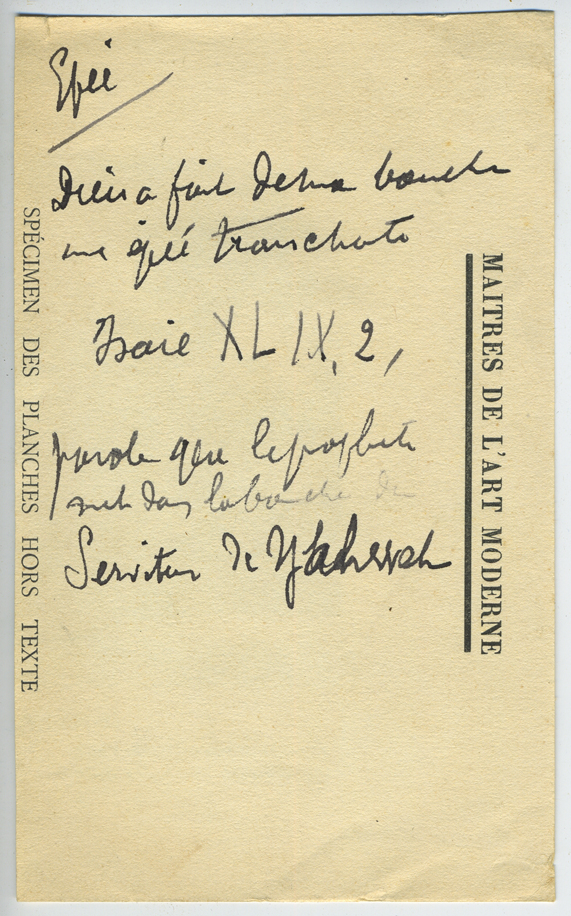 Epée
Dieu a fait de ma bouche
une épée tranchante
Isaie XLIX, 2,
parole que le prophète
met dans la bouche du
Serviteur de Yahweh
SPÉCIMEN DES PLANCHES HORS TEXTE
MAITRES DE L'ART MODERNE